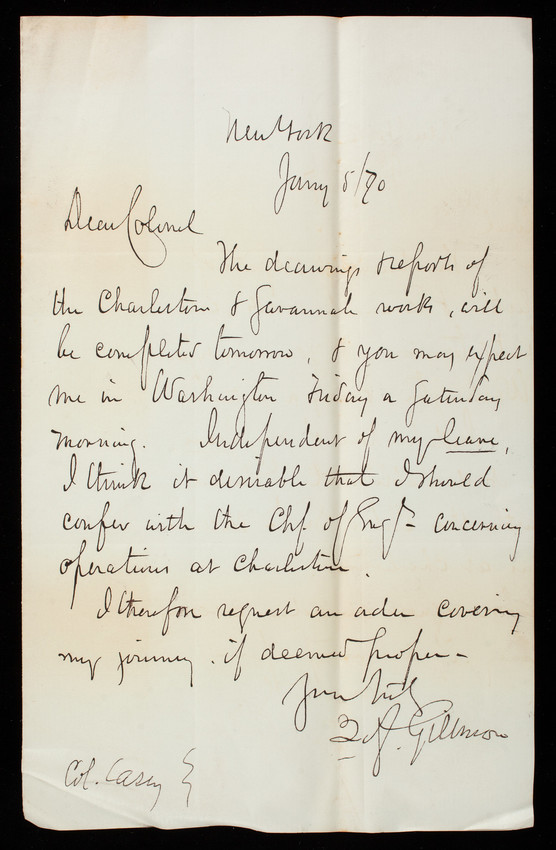 New York
Jany 5/70
Dear Colonel
The drawings & reports of
the Charleston & Savannah works, will
be completed tomorrow, & you may expect
me in Washington Friday or Saturday
morning. Independent of my leave,
I think it desirable that I should
confer with the Chf of Engrs - concerning
operations at Charleston.
I therefore request an order covering
my journey, if deemed proper -
Yours truly
Q. A. Gillmore
Col. Casey }